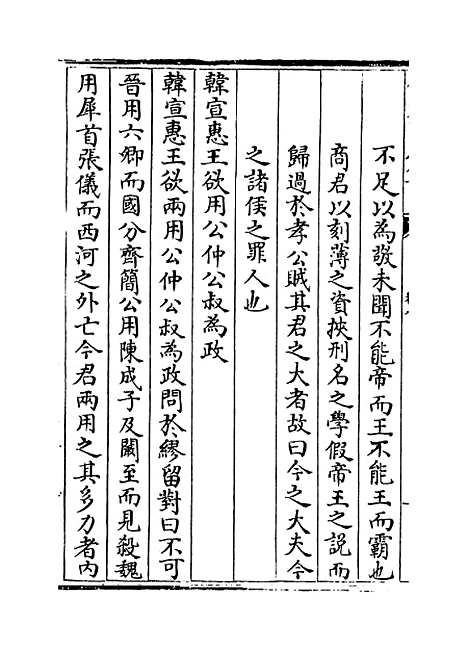 不足以為敬未聞不能帝而王不能王而霸也
商君以刻薄之資挾刑名之學假帝王之説而
歸過於孝公賊其君之大者故曰今之大夫今
之諸侯之罪人也
韓宣惠王欲用公仲公叔為政
韓宣惠王欲兩用公仲公叔為政問於繆留對曰不可
晉用六卿而國分齊簡公用陳成子及闞至而見殺魏
用犀首張儀而西河之外亡今君兩用之其多力者内